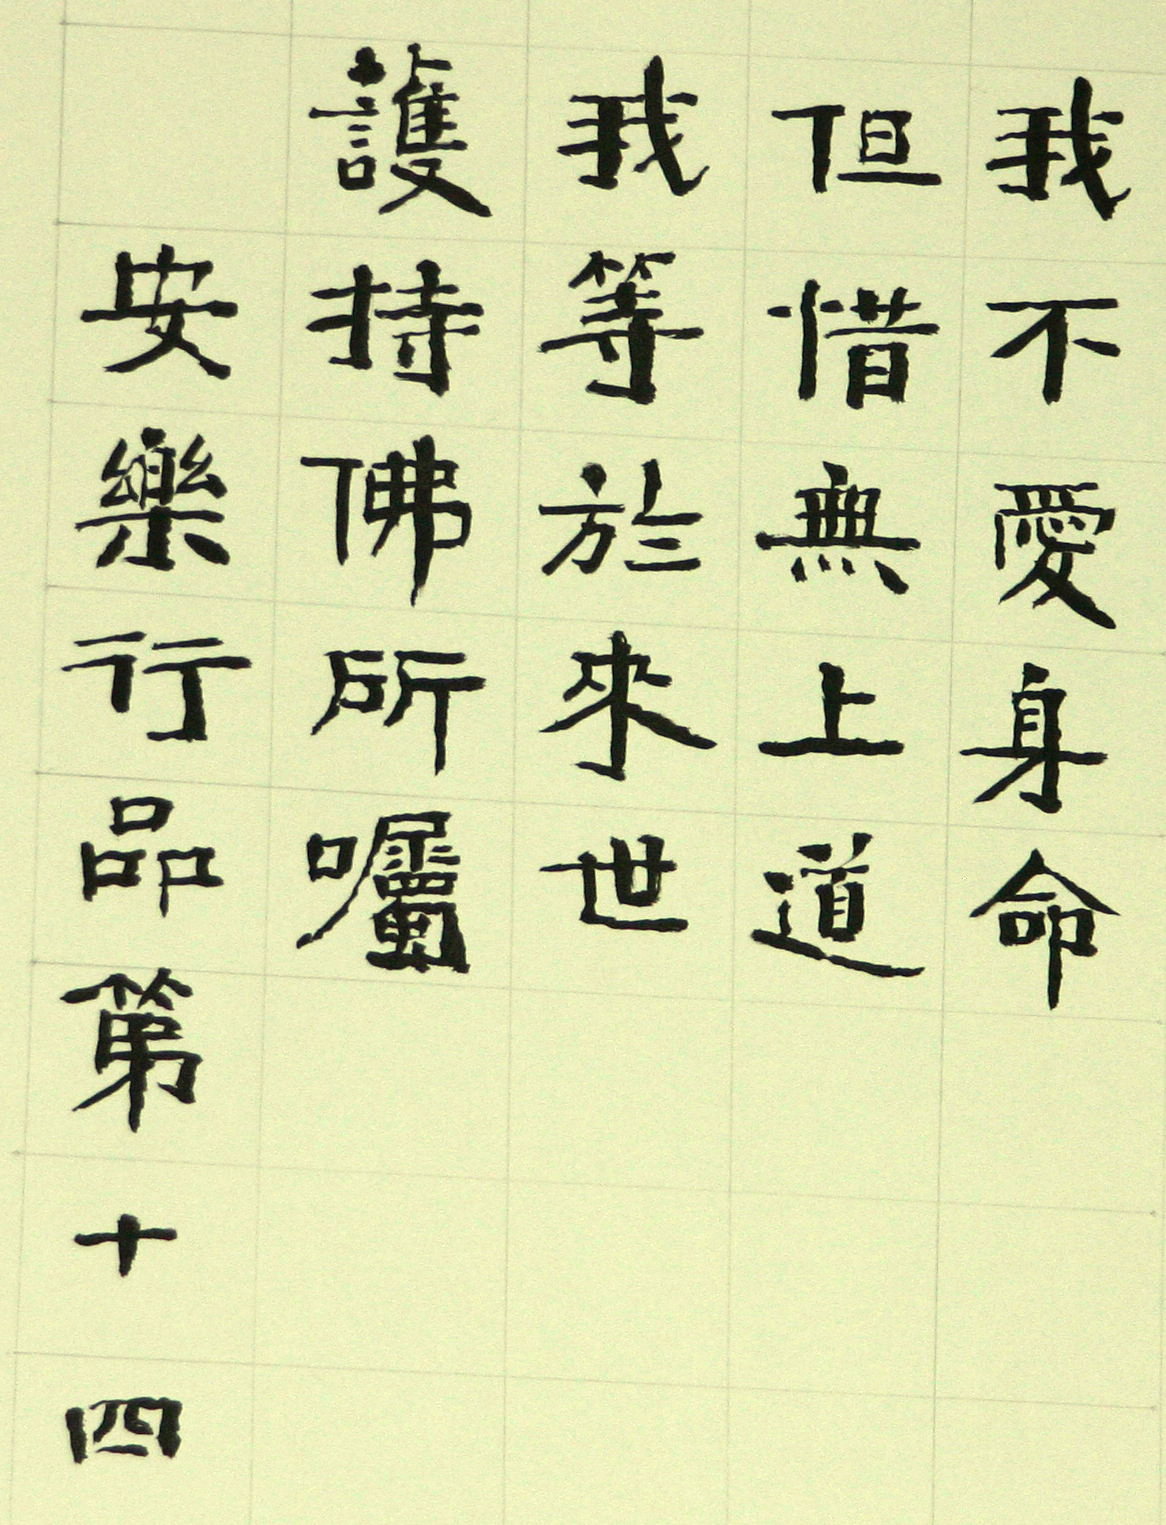 我不愛身命
但惜無上道
我等於來世
護持佛所囑
安樂行品第十四